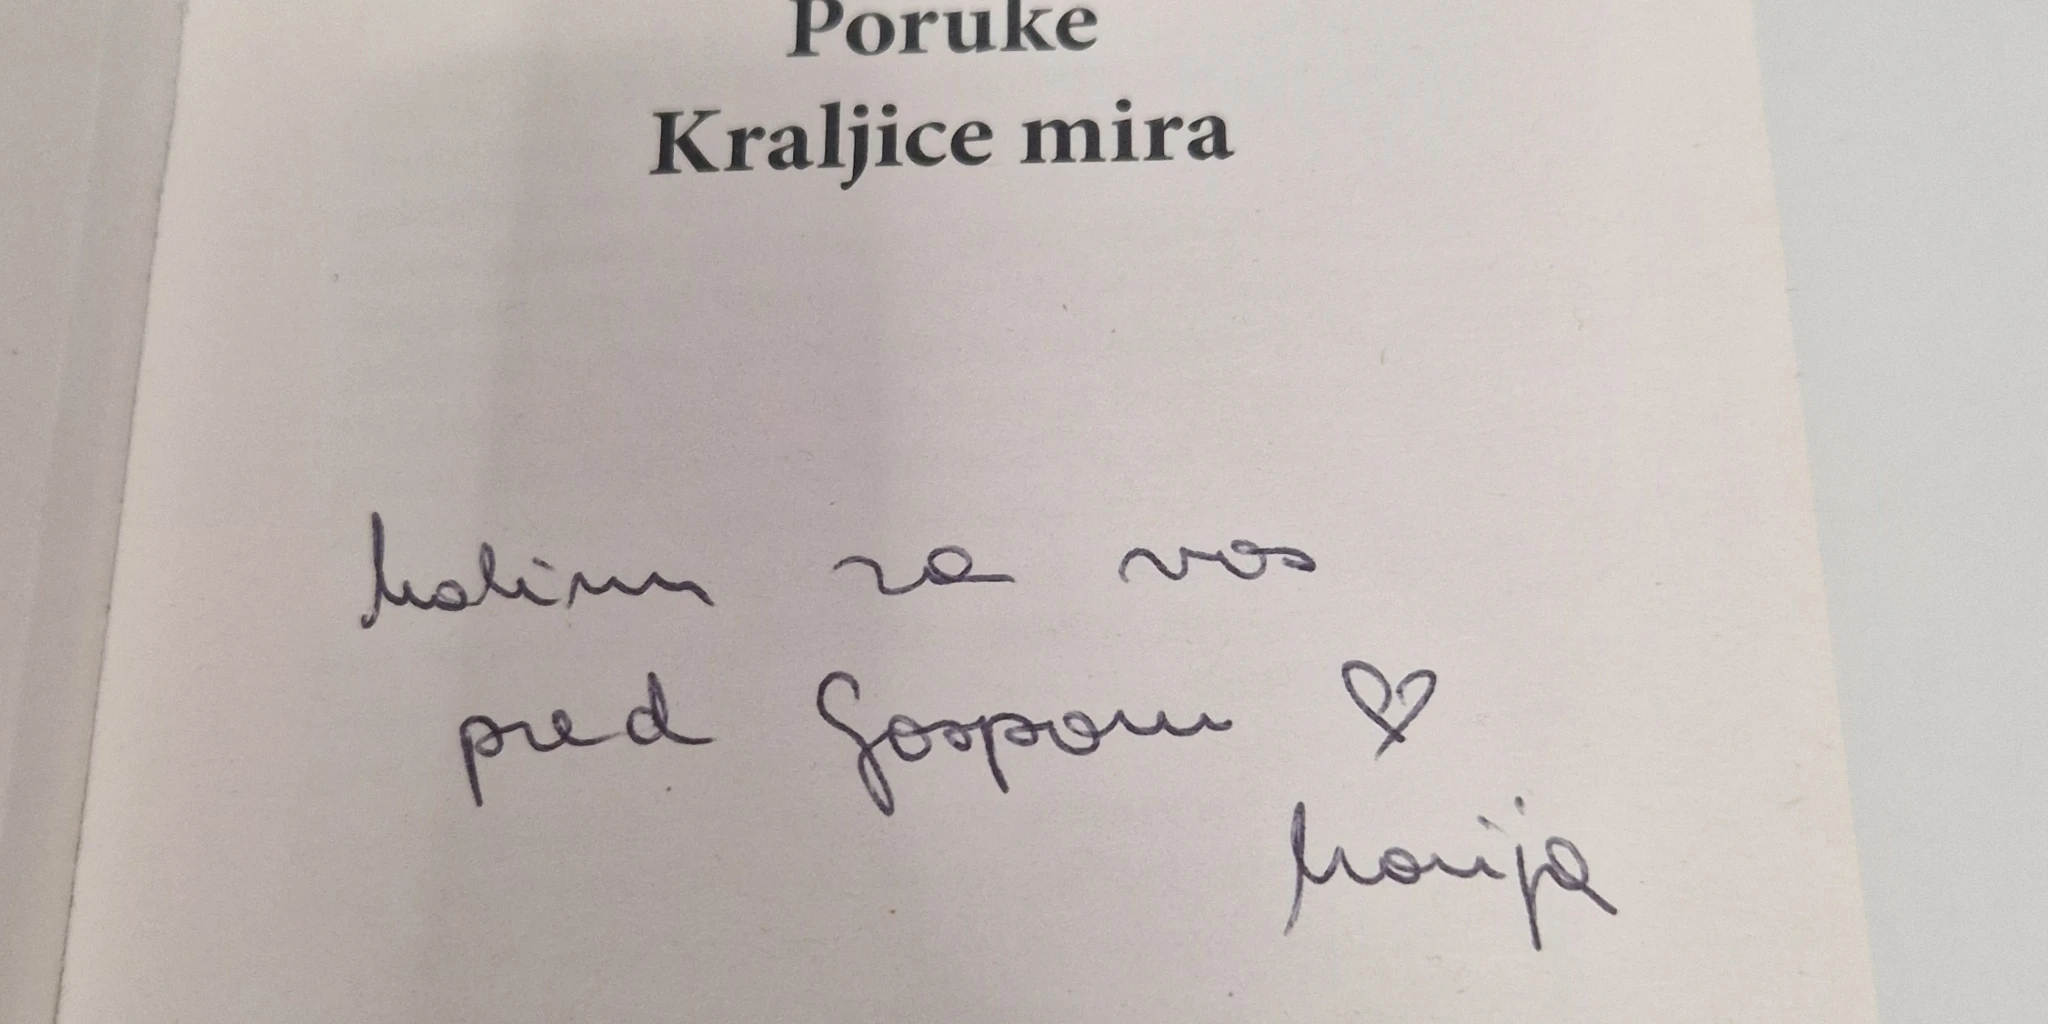 Poruke
Kraljice mira
Molim za vas
pred Gospom ♡
Marija